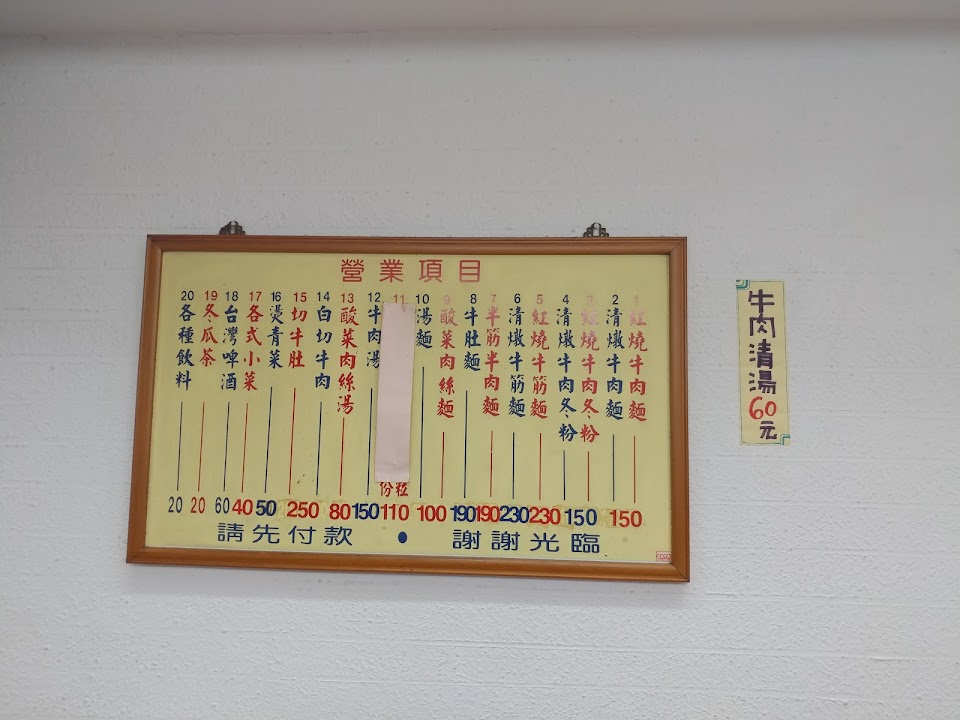 營業項目
1 紅燒牛肉麵
2 清燉牛肉麵
3 紅燒牛肉冬粉
4 清燉牛肉冬粉
5 紅燒牛筋麵
6 清燉牛筋麵
7 半筋半肉麵
8 牛肚麵
9 酸菜肉絲麵
10 湯麵
11
12 牛肉湯
13 酸菜肉絲湯
14 白切牛肉
15 切牛肚
16 燙青菜
17 各式小菜
18 台灣啤酒
19 冬瓜茶
20 各種飲料
份粒
20 20 60 40 50 250 80 150 110 100 190 190 230 230 150 150
請先付款 • 謝謝光臨
牛肉清湯60元